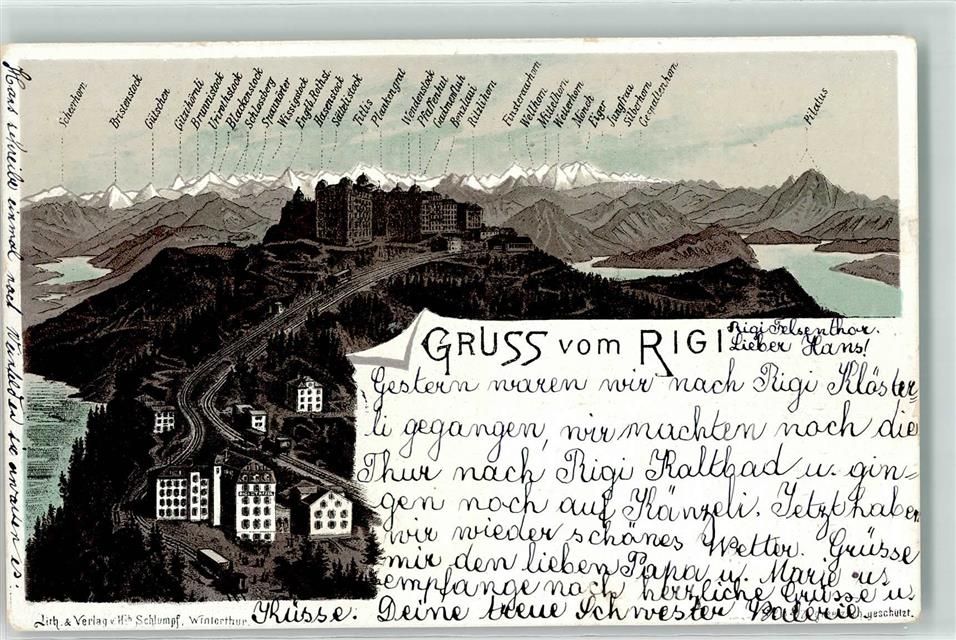 Scheerhorn
Bristenstock
Gütschen
Gitzihörnli
Brunnistock
Urirothstock
Blackenstock
Schlossberg
Spannörter
Wissigstock
Engelb. Rothst.
Hasenstock
Sättlistock
Titlis
Plankengrat
Wendenstock
Pfaffenhut
Gadmerfluh
Bonistai
Rötihorn
Finsteraarhorn
Wellhorn
Mittelhorn
Wetterhorn
Mönch
Eiger
Jungfrau
Silberhorn
Gspaltenhorn
Pilatus
GRUSS vom RIGI
Rigi Felsenthor.
Lieber Hans!
Gestern waren wir nach Rigi Klöster-
li gegangen, wir machten noch die
Thur nach Rigi Kaltbad u. gin-
gen noch auf Känzeli. Jetzt haben
wir wieder schönes Wetter. Grüsse
mir den lieben Papa u. Marie us
empfange noch herzliche Grüsse u.
Küsse. Deine treue Schwester Valerie.
Hans schreibe einmal nach
Lith. & Verlag v. Hch Schlumpf, Winterthur.
geschützt.